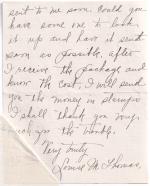 sent to me soon. Could you
have some one to look
it up and have it sent
soon as possible, after
I receive the package and
know the cost, I will send
you the money in stamps
I shall thank you very
much for the trouble.
Very truly
Thomas.